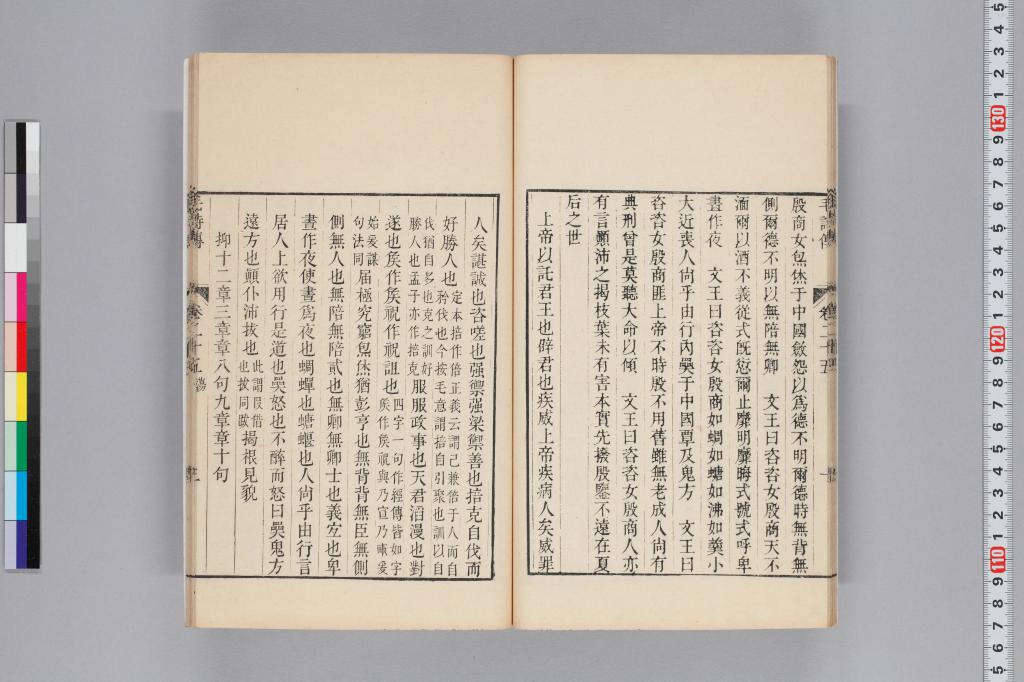 殷商女炰烋于中國斂怨以爲德不明爾德時無背無
側爾德不明以無陪無卿　文王曰咨咨女殷商天不
湎爾以酒不義從式旣愆爾止靡明靡晦式號式呼卑
晝作夜　文王曰咨咨女殷商如蜩如螗如沸如羹小
大近喪人尙乎由行內奰于中國覃及鬼方　文王曰
咨咨女殷商匪上帝不時殷不用舊雖無老成人尙有
典刑曾是莫聽大命以傾　文王曰咨咨女殷商人亦
有言顚沛之揭枝葉未有害本實先撥殷鑒不遠在夏
后之世
上帝以託君王也辟君也疾威上帝疾病人矣威罪
人矣諶誠也咨嗟也强禦强梁禦善也掊克自伐而
好勝人也定本掊作倍正義云謂己兼倍于人而自
矜伐也今按毛意謂掊自引聚也訓以自
伐猶自多也克之訓好
勝人也孟子亦作掊克服服政事也天君滔漫也對
遂也矦作矦祝作祝詛也四字一句作經傳皆如字
矦作矦祝與乃宣乃畝爰
始爰謀
句法同届極究窮炰烋猶彭亨也無背背無臣無側
側無人也無陪無陪貳也無卿無卿士也義宐也卑
晝作夜使晝爲夜也蜩蟬也螗蝘也人尙乎由行言
居人上欲用行是道也奰怒也不醉而怒曰奰鬼方
遠方也顚仆沛拔也此謂叚借
也拔同揭根見皃
抑十二章三章章八句九章章十句
毛詩傳
卷二十五